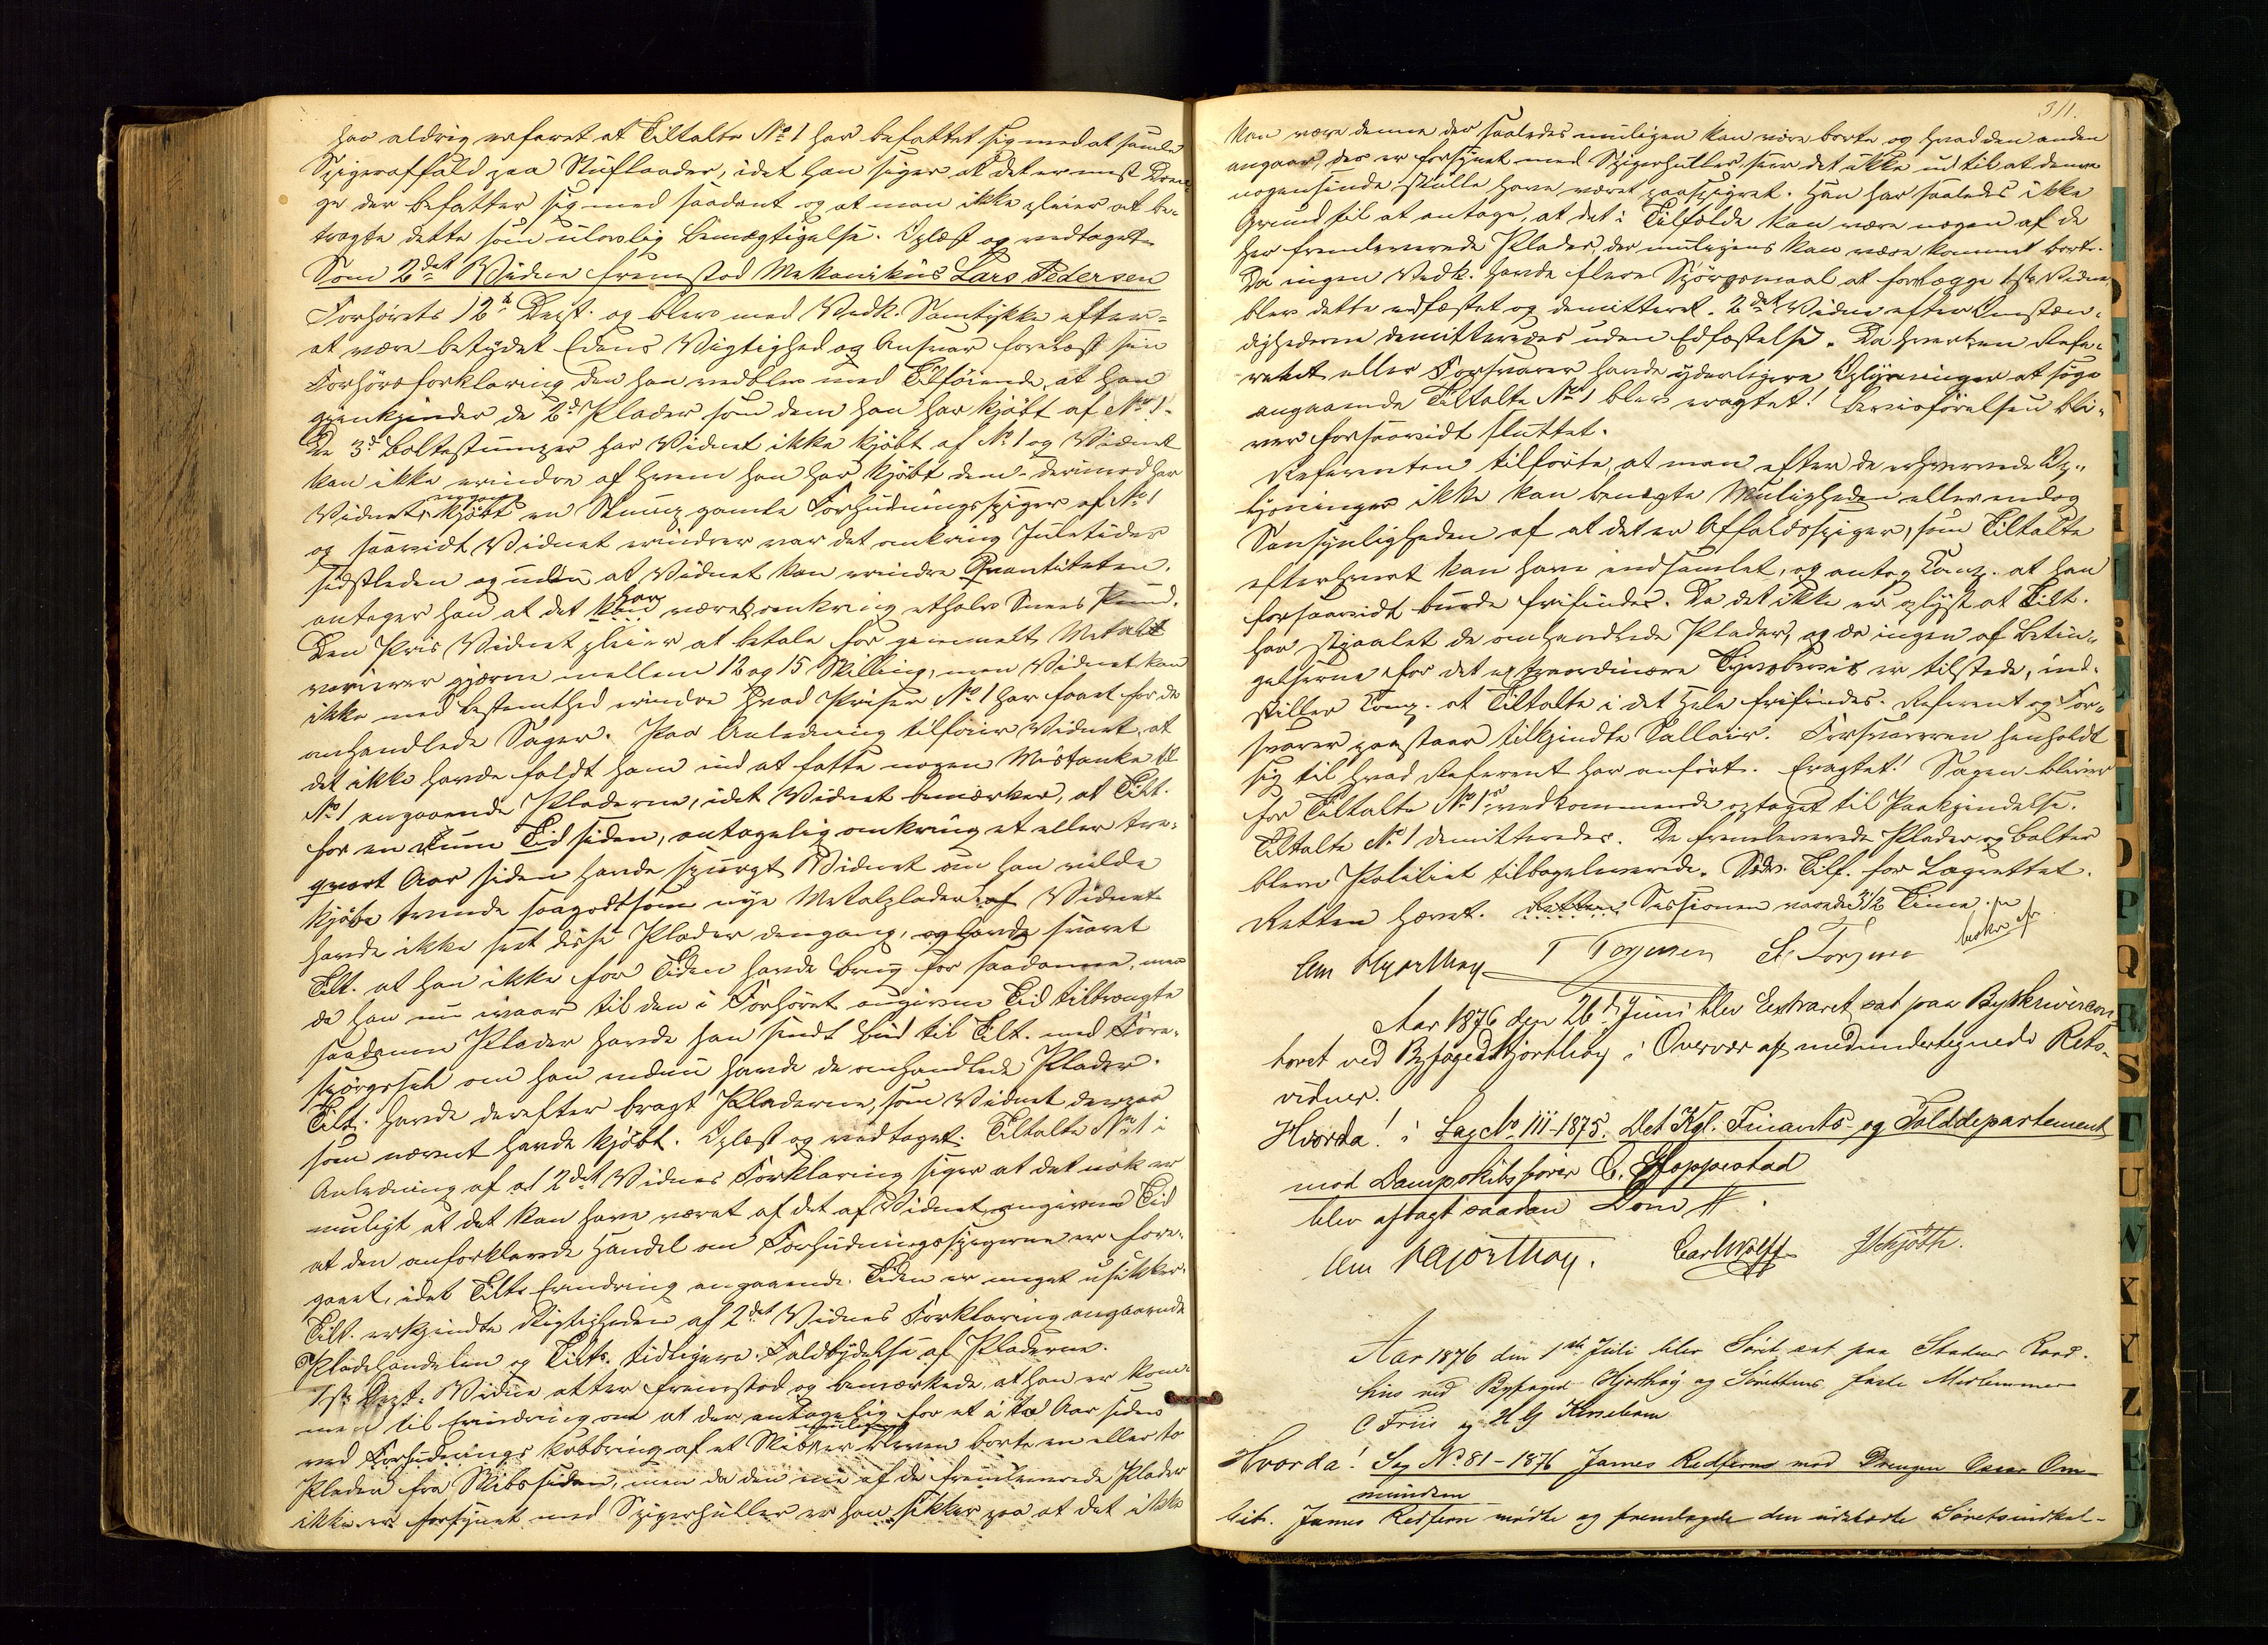 har aldrig erfaret at Tiltalte No 1 har befattet sig med at samle
Spigeraffald paa Skuflander, idet han siger at det er mest Dren-
ge der befatter sig med saadant og at man ikke pleier at be-
tragte dette som ulovlig Bemægtigelse. Oplæst og vedtaget.
Som 2det Vidne fremstod Mekanikus Lars Pedersen
Forhørets 12te Dept. og blev med Vedk. Samtykke efter
at være betydet Edens Vigtighed og Ansvar forelæst sin
Forhørsforklaring den han vedblev med Tilføiende at han
gjenkjender de 2de Plader som dem han har kjøbt af No 1.
De 3de Boltestumper har Vidnet ikke kjøbt af No 1 og Vidnet
kan ikke erindre af hvem han har kjøbt dem. Derimod har
Vidnet engang kjøbt en Slump gamle Forhudningsspiger af No 1
og saavidt Vidnet erindrer var det omkring Juletider
sidstleden og uden at Vidnet kan erindre Quantiteten,
antager han at det kan have været omkring et halv Snees Pund.
Den Pris Vidnet pleier at betale for gammelt Metal
varierer gjerne mellem 12 og 15 Skilling, men Vidnet kan
ikke med Bestemthed erindre hvad Priser No 1 har faaet for de
omhandlede Sager. Paa Anledning tilføier Vidnet, at
det ikke havde faldt ham ind at fatte nogen Mistanke til
No 1 angaaende Pladerne, idet Vidnet bemærker, at Tilt.
for en Tid siden, antagelig omkring et eller tre-
qvart Aar siden havde spurgt Vidnet om han vilde
kjøbe tvende saagodtsom nye Metalplader af Vidnet
havde ikke seet disse Plader dengang, og havde svaret
Tilt. at han ikke for Tiden havde Brug for saadanne, men
da han nu ivaar til den i Forhøret angivne Tid tiltrængte
saadanne Plader havde han sendt Bud til Tilt. med Fore-
spørgsel om han endnu havde de omhandlede Plader.
Tilt. havde derefter bragt Pladerne, som Vidnet derpaa
som nævnt havde kjøbt. Oplæst og vedtaget. Tiltalte No 1 i
Anledning af 2det Vidnes Forklaring siger at det nok er
muligt at det kan have været af det af Vidnet angivne Tid
at den omforklarede Handel om Forhudningsspigerne er fore-
gaaet, idet Tilts Erindring angaaende Tiden er meget usikker.
Tilt. erkjendte Rigtigheden af 2det Vidnes Forklaring angaaende
Pladehandelen og Tilts. tidligere Falbydelse af Pladerne.
1ste Dept. Vidne atter fremstod og bemærkede, at han er kom-
men til Erindring om at der antagelig for et à to Aar siden
ved Forhudnings Kobbring af et Skib er muligens bleven borte en eller to
Plader fra Skibssiden, men da den ene af de fremleverede Plader
ikke er forsynet med Spigerhuller er han sikker paa at det ikke
311.
kan være denne der saaledes muligen kan være borte og hvad den anden
angaar, der er forsynet med Spigerhuller, ser det ikke ud til at denne
nogensinde skulle have været paaspigret. Han har saaledes ikke
Grund til at antage, at det i Tilfælde kan være nogen af de
her fremleverede Plader, der muligens kan være kommet bort.
Da ingen Vedk. havde flere Spørgsmaal at forelægge 1ste Vidne,
blev dette edfæstet og demitteret. 2det Vidne efter Omstæn-
dighederne demitteredes uden Edfæstelse. Da hverken Refe-
rent eller Forsvarer havde yderligere Oplysninger at søge
angaaende Tiltalte No 1 blev eragtet! Bevisførelsen bli-
ver forsaavidt sluttet.
Referenten tilførte, at man efter de erhvervede Op-
lysninger ikke kan benegte Muligheden eller endog
Sansynligheden af at det er Affaldsspiger, som Tiltalte
efterhvert kan have indsamlet, og antog Comp. at han
forsaavidt burde frifindes. Da det ikke er oplyst at Tilt.
har stjaalet de omhandlede Plader, og da ingen af Betin-
gelserne for det extraordinære Tyvsbevis er tilstede, ind-
stiller Comp. at Tiltalte i det Hele frifindes. Referent og For-
svarer paastaar tilkjendte Sallair. Forsvareren henholdt
sig til hvad Referent har anført. Eragtet! Sagen bliver
for Tiltalte No 1s vedkommende optaget til Paakjendelse.
Tiltalte No 1 demitteredes. De fremleverede Plader og Bolter
blev Politiet tilbageleverede. Sedv. Tilf. for Lagrettet.
Retten hævet. Sessionen varede 3 1/2 Time.
Chr Hjorthøy T Torjusen
Aar 1876 den 26de Juni blev Extraret sat paa Byskrivercon-
toret ved Byfoged Hjorthøy i Overvær af medundertegnede Rets-
vidner.
Hvorda! i Sag No 111-1875. Det Kgl. Finants- og Tolddepartement
mod Dampskibsfører C. Hoppestad
blev afsagt saadan Dom #.
Chr Hjorthøy. Carl Wolff Schjøth.
Aar 1876 den 1ste Juli blev Søret sat paa Stadens Raad-
hus ved Byfoged Hjorthøy og Sørettens faste Medlemmer
C Friis og
Hvorda! Sag No 81-1876 James Redfern mod Drengen Oscar Om-
mundsen
Cit. James Redfern mødte og fremlagde den udstædte Søretsindkal-